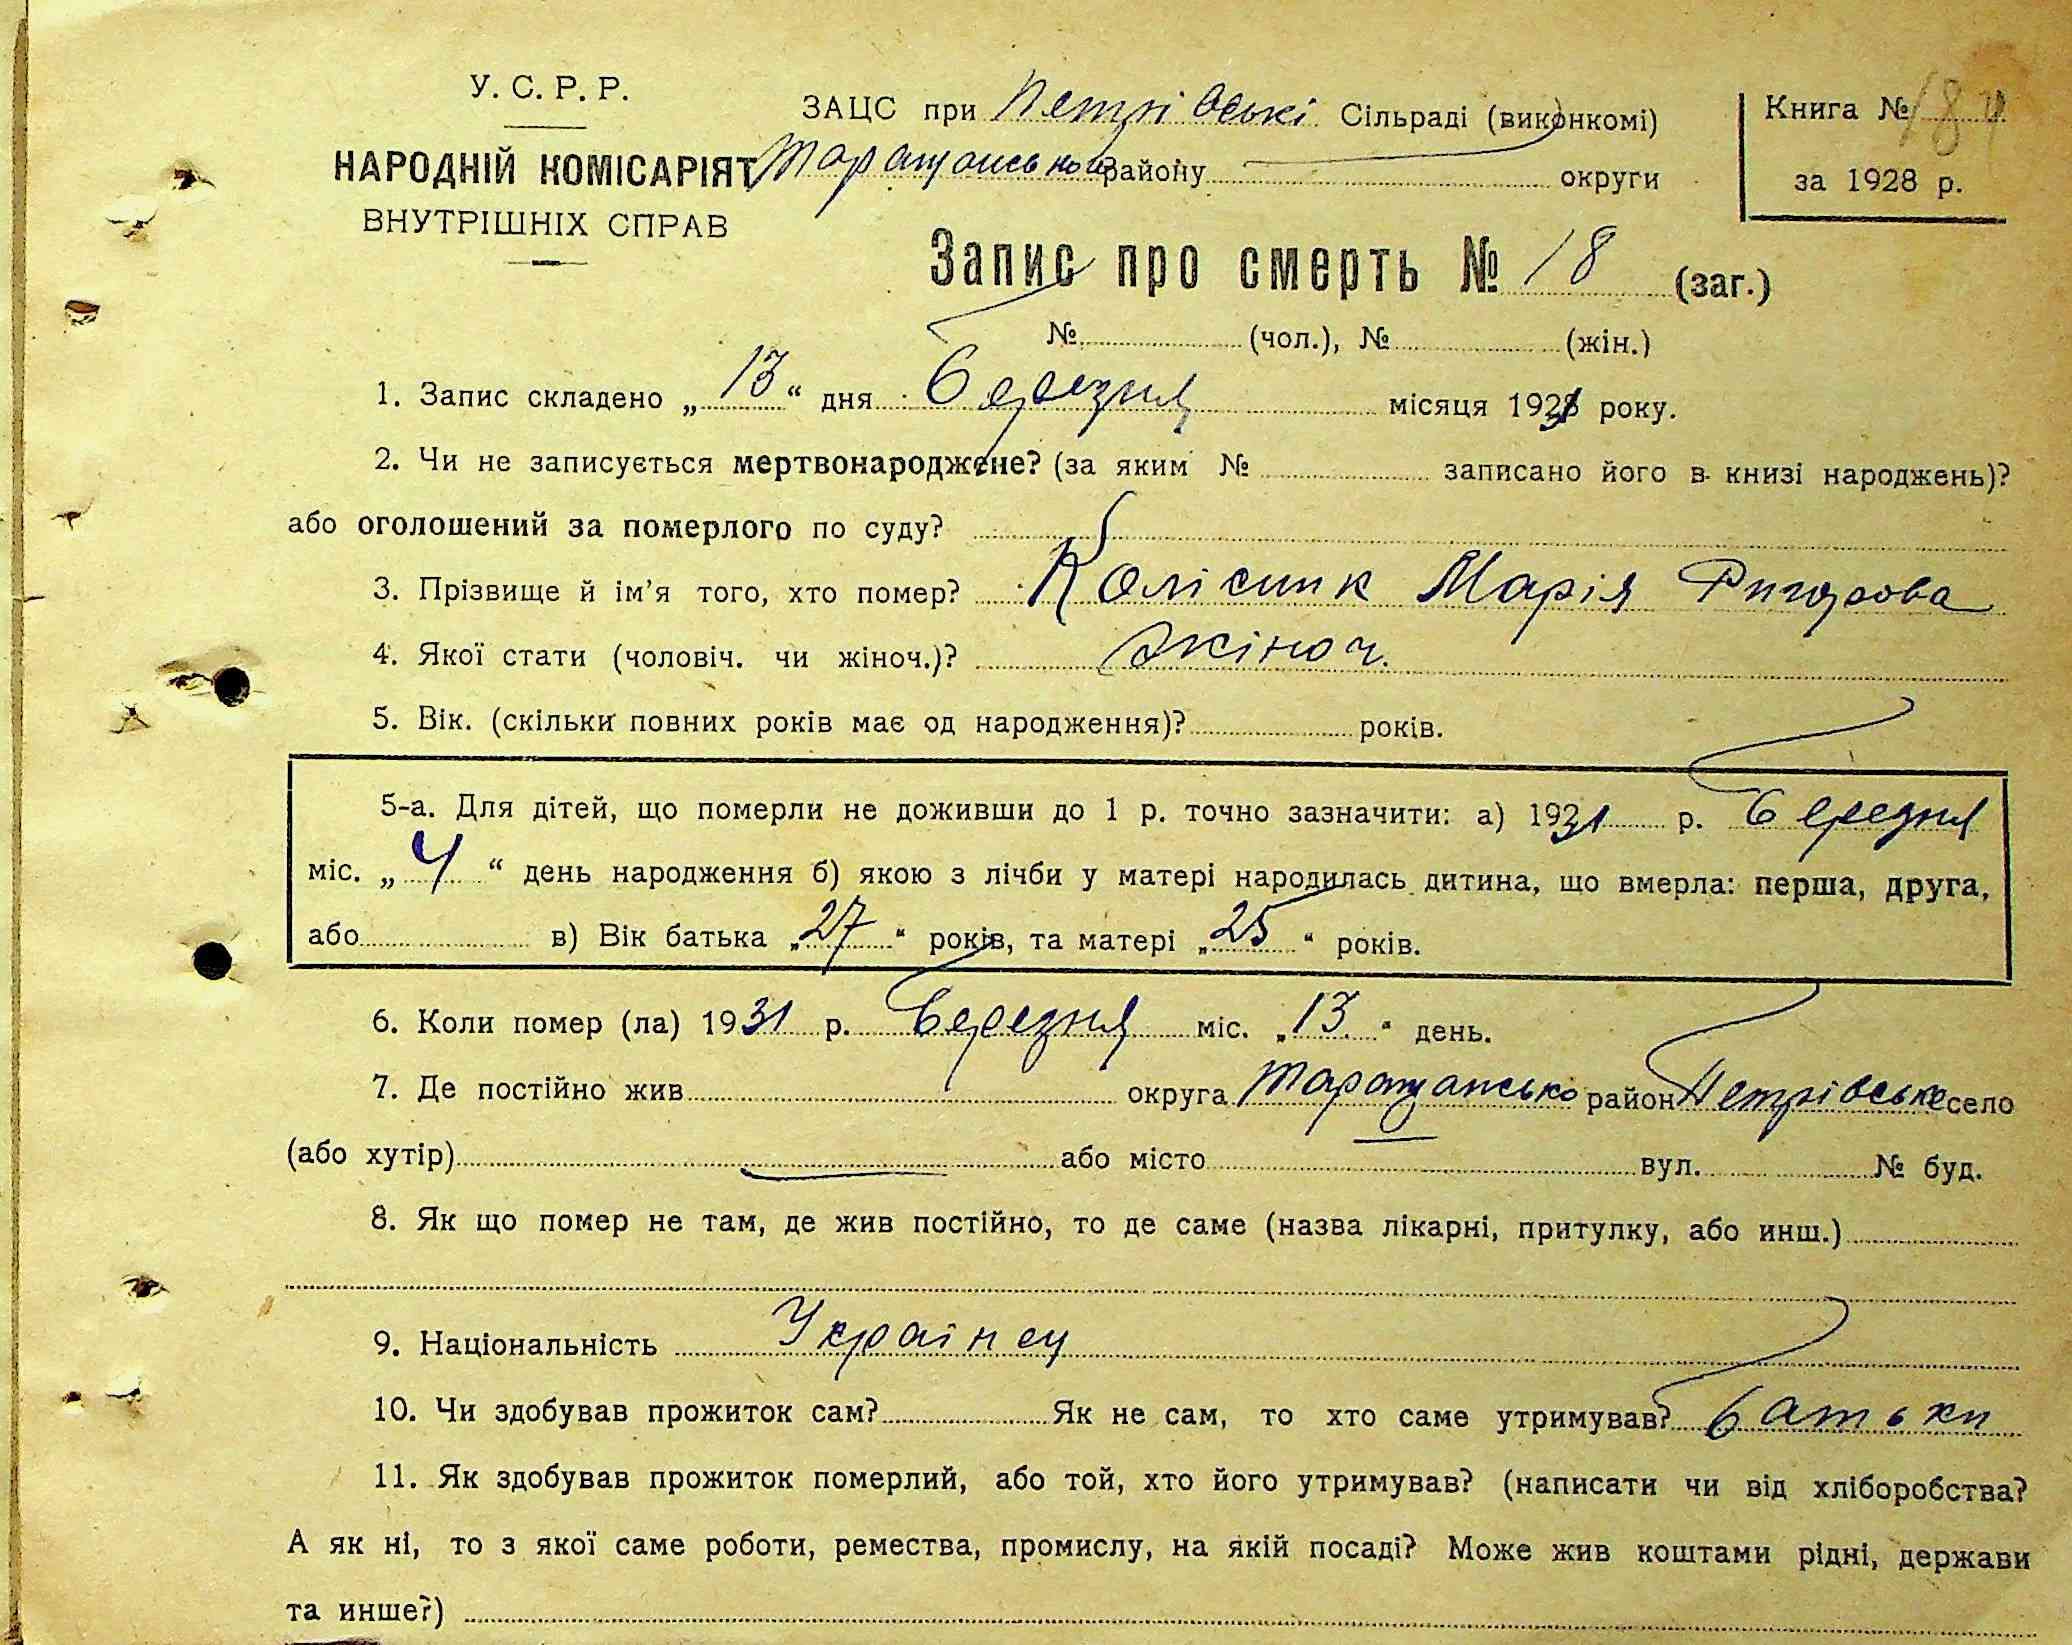 У. С. Р. Р.
НАРОДНІЙ КОМІСАРІЯТ
ВНУТРІШНІХ СПРАВ
ЗАЦС при Петрівські Сільраді (виконкомі)
Таращанського Району округи
Книга №
за 1928 р.
Запис про смерть № 18 (заг.)
№ (чол.), № (жін.)
1. Запис складено „13“ дня Березня місяця 1931 року.
2. Чи не записується мертвонароджене? (за яким № записано його в книзі народжень)?
або оголошений за померлого по суду?
3. Прізвище й ім'я того, хто помер? Колісник Марія Ригорова
4. Якої стати (чоловіч. чи жіноч.)? жіноч.
5. Вік. (скільки повних років має од народження)? років.
5-а. Для дітей, що померли не доживши до 1 р. точно зазначити: а) 1931 р. Березня
міс. „4“ день народження б) якою з лічби у матері народилась дитина, що вмерла: перша, друга,
або в) Вік батька „27“ років, та матері „25“ років.
6. Коли помер (ла) 1931 р. Березня міс. „13“ день.
7. Де постійно жив округа Таращансько район Петрівське село
(або хутір) або місто вул. № буд.
8. Як що помер не там, де жив постійно, то де саме (назва лікарні, притулку, або инш.)
9. Національність Украінец
10. Чи здобував прожиток сам? Як не сам, то хто саме утримував? батьки
11. Як здобував прожиток померлий, або той, хто його утримував? (написати чи від хліборобства?
А як ні, то з якої саме роботи, ремества, промислу, на якій посаді? Може жив коштами рідні, держави
та инше?)